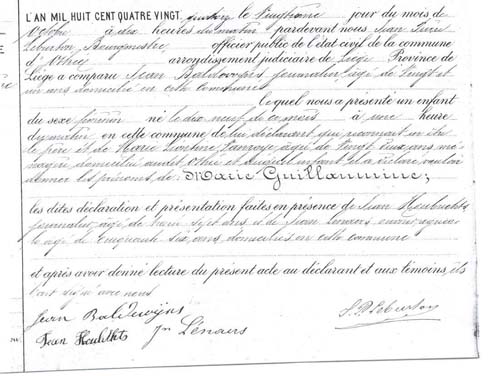 L'AN MIL HUIT CENT QUATRE VINGT le jour du mois de
à dix heures du matin pardevant nous Jean Pierre
Leburton Bourgmestre officier public de l'état civil de la commune
d'Othée arrondissement judiciaire de Liége Province de
Liége a comparu Jean journalier âgé de Vingt et
un ans domicilié en cette commune
Lequel nous a présenté un enfant
du sexe féminin né le dix neuf de ce mois à une heure
du matin en cette commune de lui déclarant qui reconnait en être
le père et de Marie âgée de Vingt deux ans
domiciliée audit Othée et auquel enfant il a déclaré vouloir
donner les prénoms de Marie Guillaumine;
les dites déclaration et présentation faites en présence de Jean
journalier, âgé de sept ans et de Jean Lenaers
âgé de Cinquante six ans domiciliés en cette commune
et après avoir donné lecture du présent acte au déclarant et aux témoins, ils
l'ont signé avec nous
Jean Baldewijns
Jean Jn Lenaers
J. P. Leburton